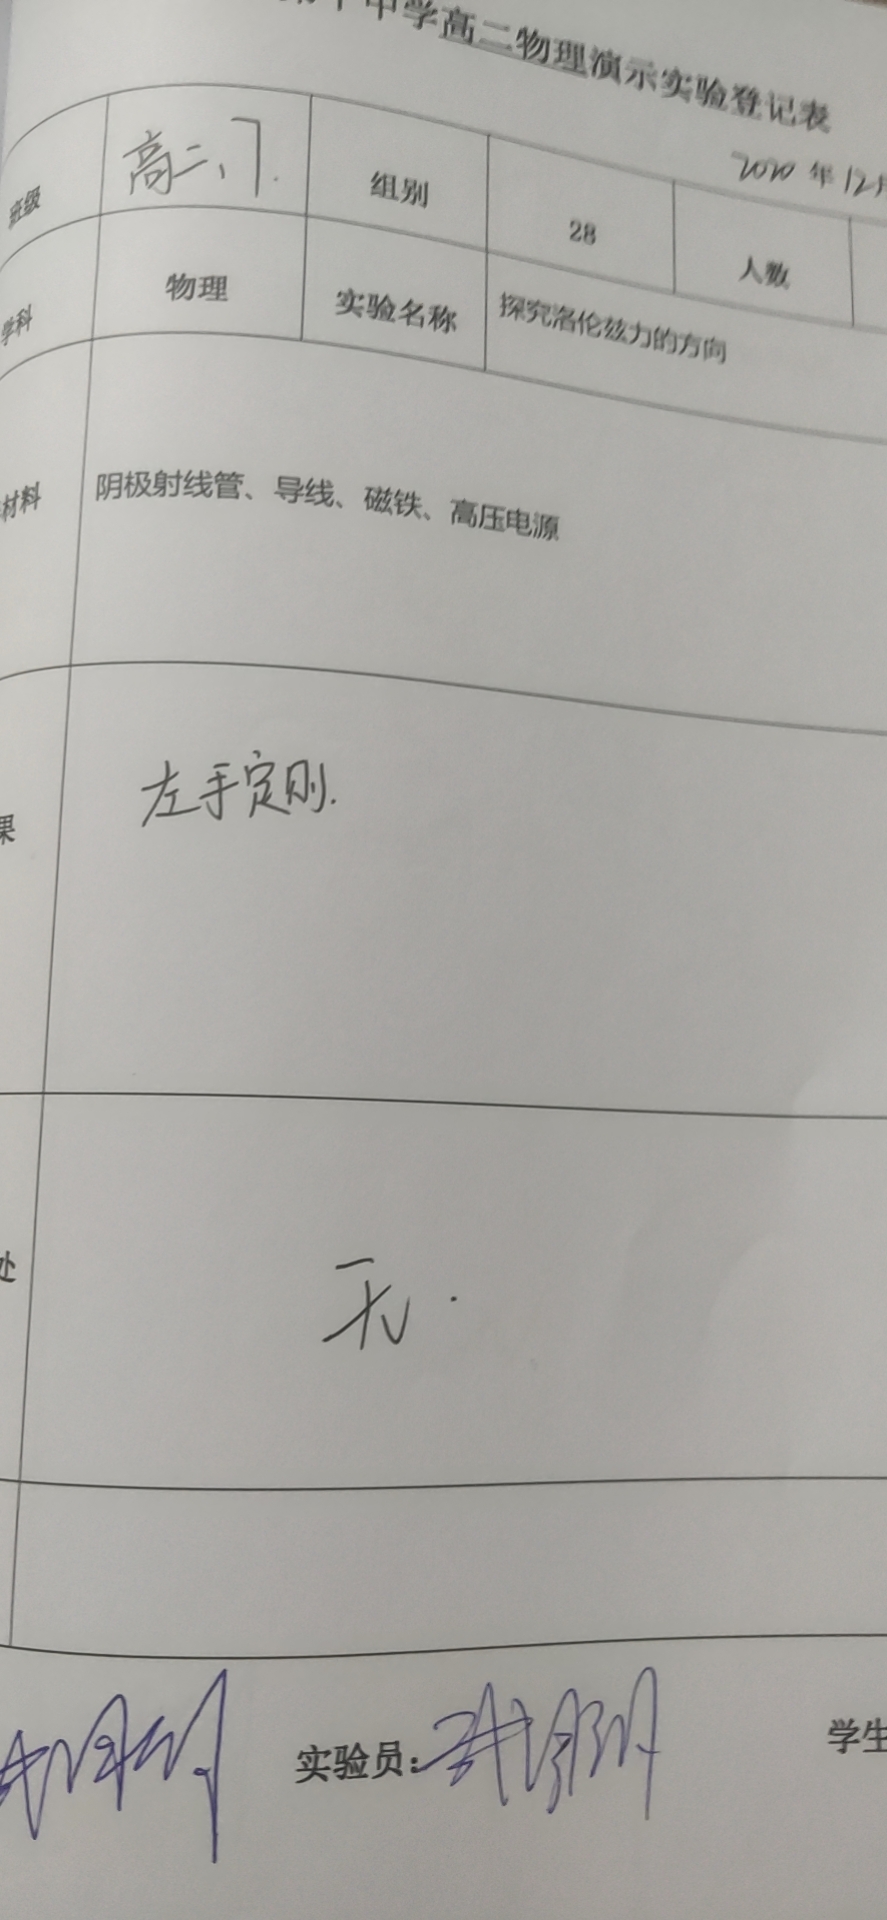 中学高二物理演示实验登记表
2020 年 12月
班级 高二、7. 组别 28 人数
学科 物理 实验名称 探究洛伦兹力的方向
材料 阴极射线管、导线、磁铁、高压电源
果 左手定则.
处 无.
实验员: 学生